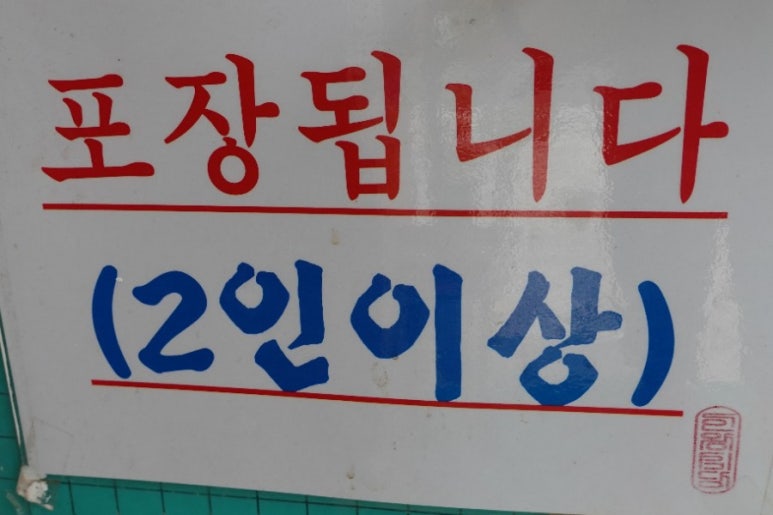 포장됩니다
(2인이상)